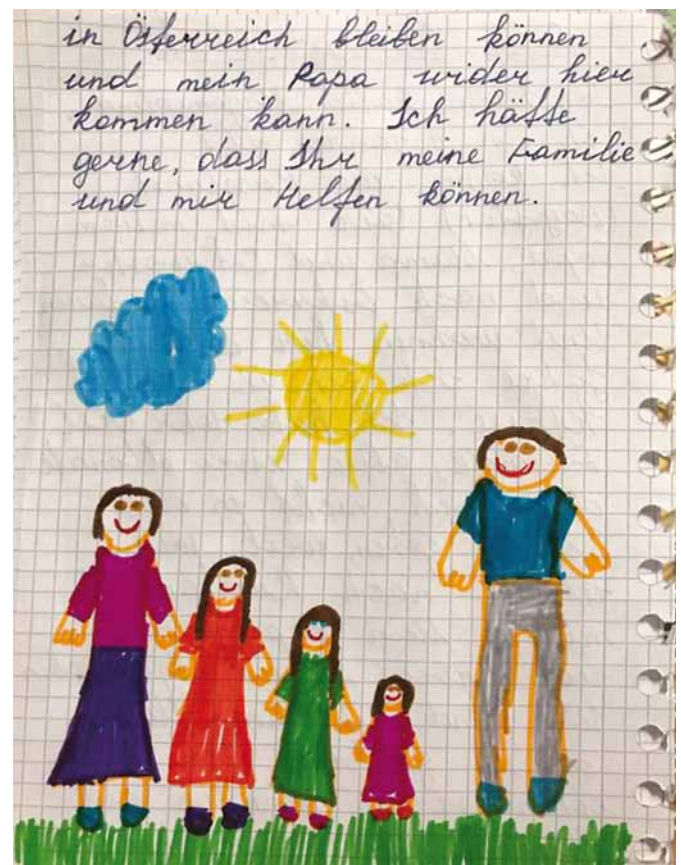 in Österreich bleiben können
und mein Papa wider hier
kommen kann. Ich hätte
gerne, dass Ihr meine Familie
und mir Helfen können.